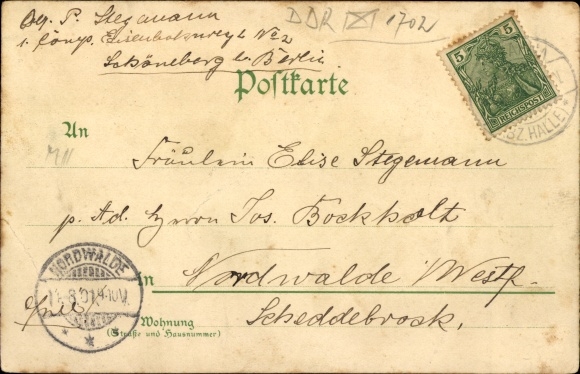 P. Stegemann
DDR XI 1702
1. Comp. No 2
Schöneberg b. Berlin
Postkarte
5 5
REICHSPOST
BZ HALLE)
An
Fräulein Elise Stegemann
p. Ad. Herrn Jos. Bockholt
NORDWALDE
in Nordwalde i/Westf.
Wohnung
(Straße und Hausnummer)
Scheddebrock.